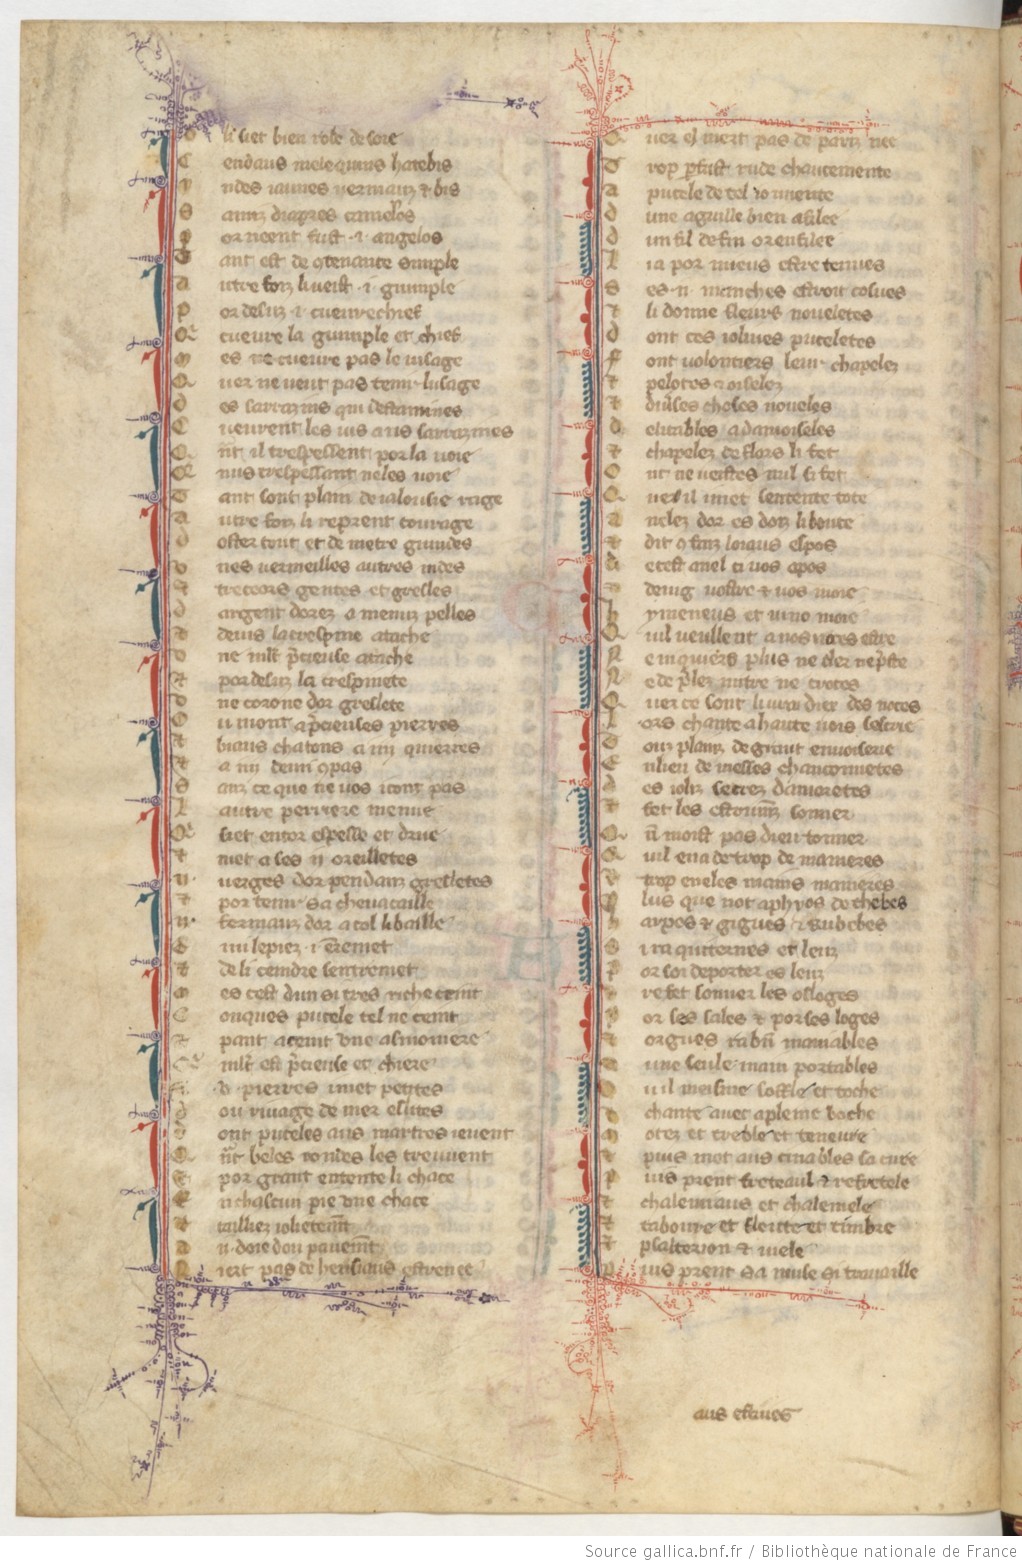 O li siet bien robe de soie
C endaus melequins hatebis
I ndes iaunes vermauz & bis
S amiz diapres camelos
P or neent fust .i. angelos
T ant est de 9tenance simple
A utre foiz li vest .i. guimple
P or desus .i. cuevrechief
Q' cuevre la guimple et chief
M es ne cuevre pas le visage
Q uer ne veut pas tenir lusage
D es sarrazins qui destamines
C uevrent les vis aus sarrazines
Q nt il trespessent por la voie
Q' nus trespessant ne les voie
T ant sont plain de ialousie rage
A utre foiz li reprent courage
D oster tout et de metre guindes
V nes vermeilles autres indes
E treceors gentes et gresles
D argent dorez a menuz pelles
E desus la crespine atache
V ne mlt p̃cieuse atache
E por desuz la crespinete
V ne corone dor greslete
O u mont a p̃cieuses pierres
E biaus chatons a iiii quierres
E a iiii demi 9pas
S anz ce que ne vos 9ont pas
L autre perriere menue
Q' siet entor espesse et drue
E met a ses .ii. oreilletes
.ii. verges dor pendanz greslettes
E por tenir sa chevecaille
.ii. fermauz dor a col li baille
E mi le piez .i. en remet
E de li ceindre sentremet
M es cest dun si tres riche ceint
C onques pucele tel ne ceint
E pant a ceint une asmoniere
Q' mlt est p̃cieuse et chiere
E .v. pierres i met petites
D ou rivage de mer eslites
D ont puceles aus martres ieuent
Q nt beles rondes les treuvent
E por grant entente li chace
E n chascun pie une chace
E tailliez ioliement
A .ii. doie dou pavement
N iert pas de housiaus estrenee
Q uer el niert pas de pariz nee
T rop p fust rude chaucemente
A pucele de tel iouvente
D une aguille bien afilee
D un fil de fin or enfilee
L ia por mieus estre tenues
S es .ii. manches estroit cosues
E li donne fleurs noveletes
D ont ces iolives puceletes
F ont volontiers leur chapelez
E pelotes & oiselez
E diverses choses noveles
D elitables a damoiseles
E chapelez de flors li fet
O nt ne veistes nul si fet
Q uer il i met sentente tote
A nelez dor es doiz li boute
E dit 9 fins loiaus espos
B ele cest anel ci vos apos
D evieg vostre & vos moie
H ymeneus et iuno moie
Q uil veullent a nos noces estre
N e ni quiers plus ne cler ne p̃stre
N e de prelez mitre ne croces
Q uer ce sont li vrai dieu des noces
L ors chante a haute vois serie
T ouz plains de grant envoiserie
E n lieu de messes chanconnetes
D es ioliz secrez damoretes
E fet les estrumens sonner
Q ni moist pas dieu tonner
Q uil en a de trop de manieres
E trop en eles mains manieres
P lus que not aphyos de thebes
H arpes & gigues & rubebes
S i ra quiternes et leuz
P or soi deporter es leuz
E refet sonner les orloges
P or ses sales & por ses loges
E orgues rabn maniables
A une seule main portables
O u il meisme soffle et toche
E chante avec a pleine boche
M otez et treble et teneure
E puis met aus cinables sa cure
P uis prent freteaul & refretele
E chalemiaus et chalemele
E taboure et fleuste et timbre
E psalterion & viele
P uis prent sa muse si travaille
aus estives